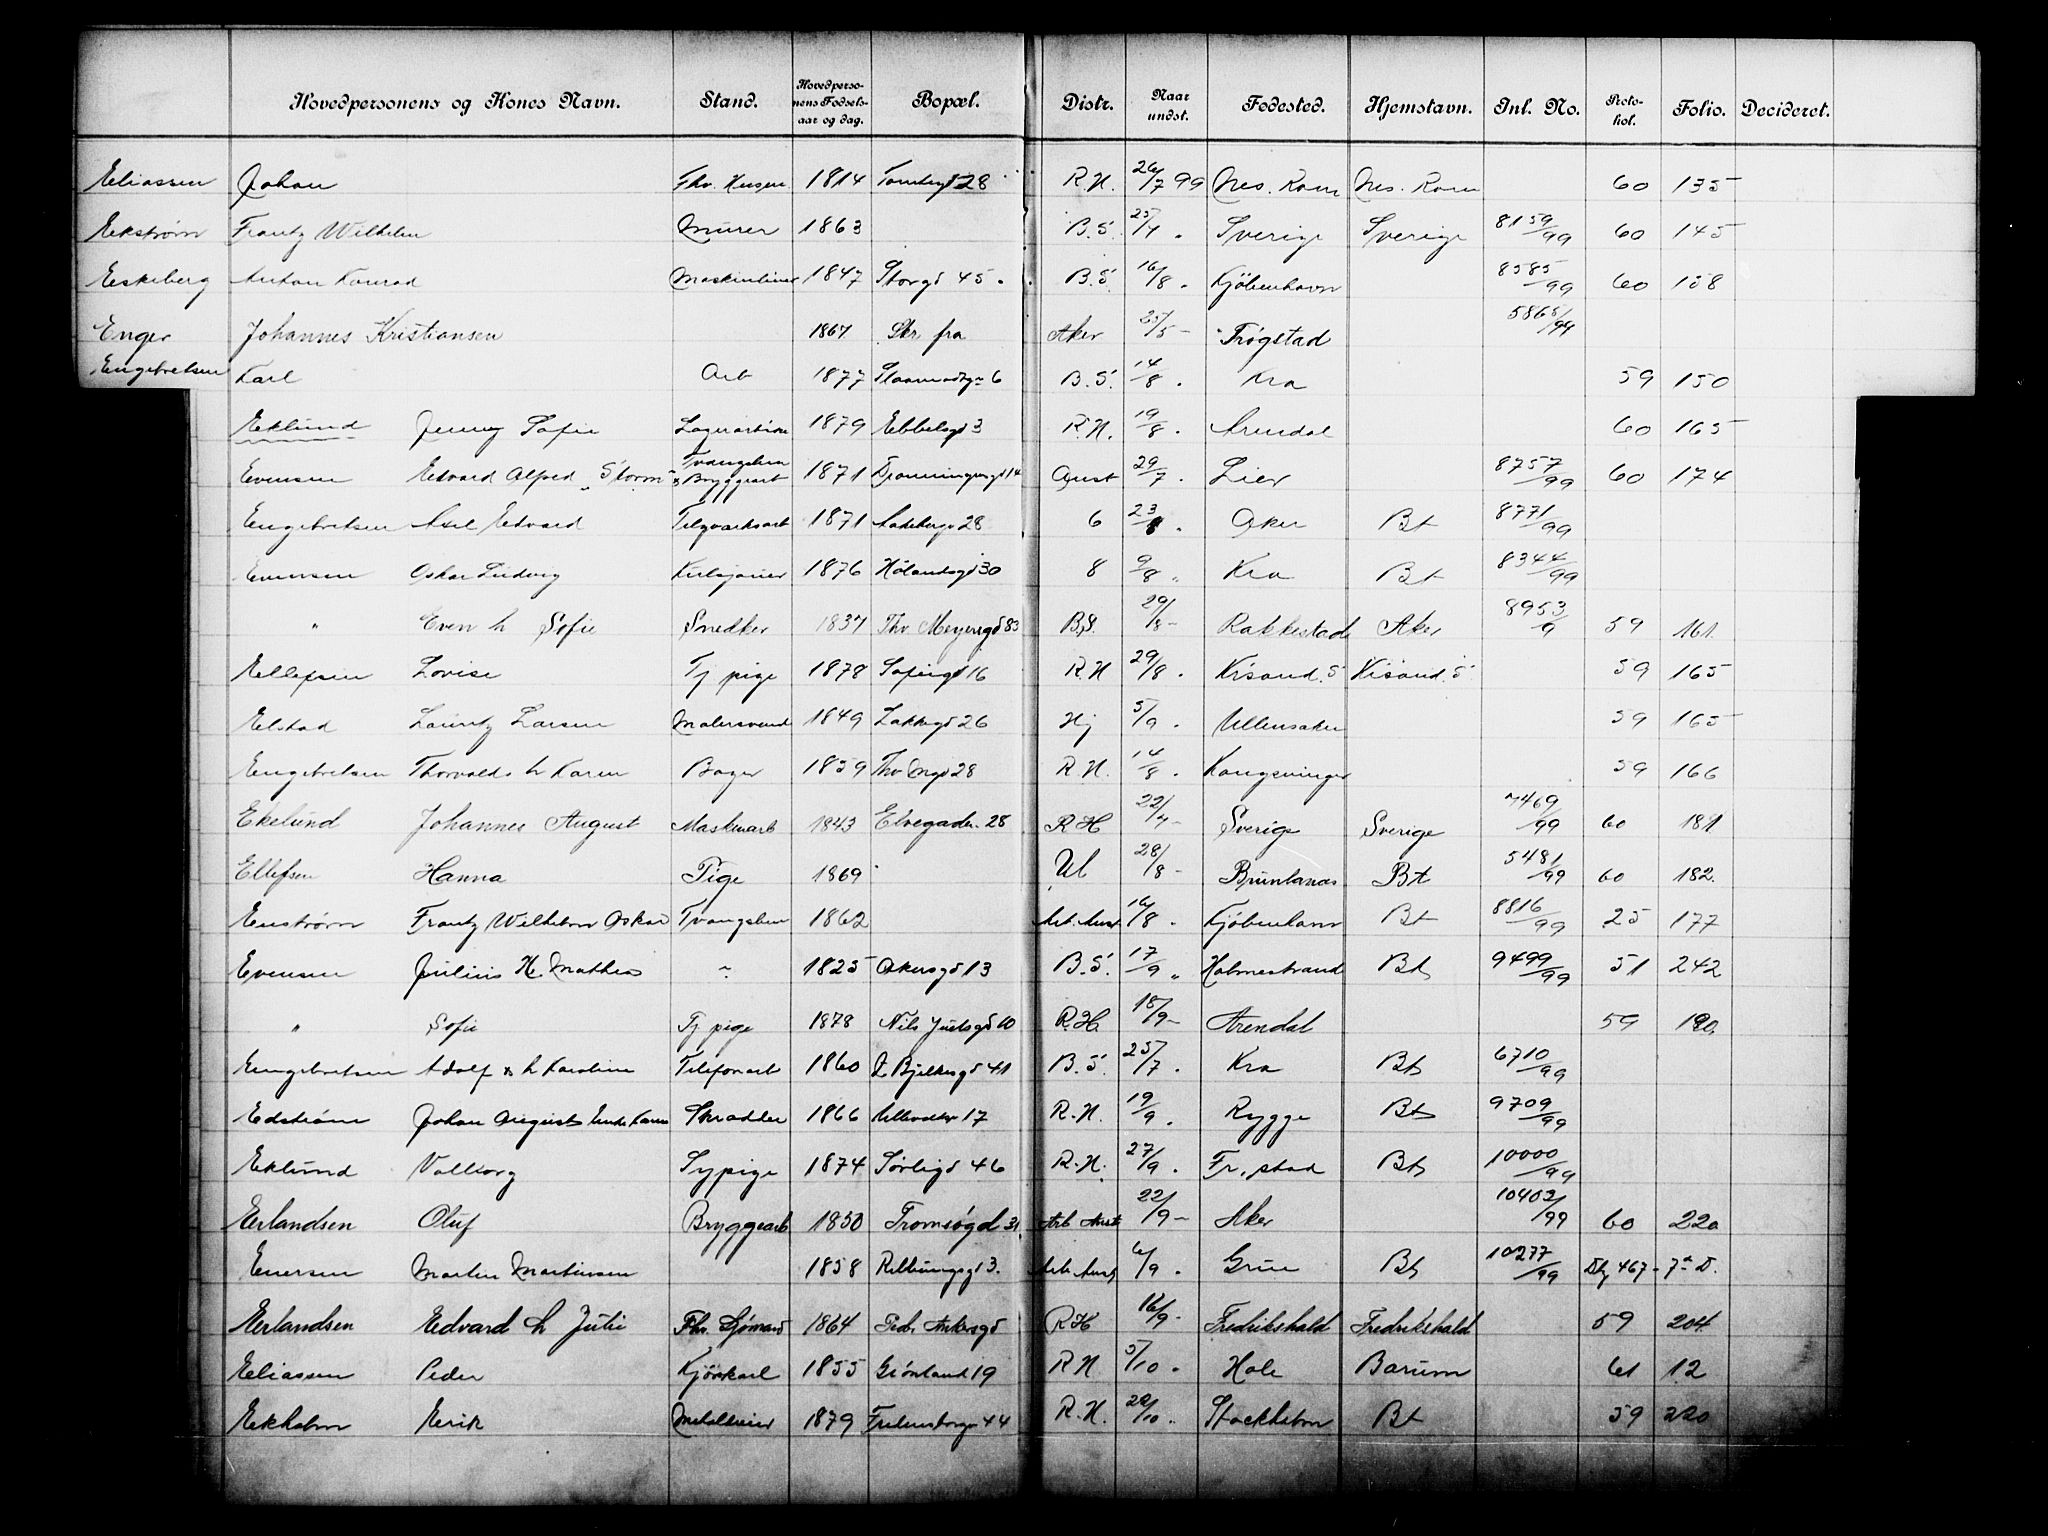 Hovedpersonens og Kones Navn. Stand. Hovedpersonens Fødselsaar og dag. Bopæl. Distr. Naar undst. Fødested. Hjemstavn. Inl. No. Protokol. Folio. Decideret.
Eliassen Johan Fhv. 1814 28 R.H. 26/7 99 Nes. Rom Nes. Rom 60 135
Ekström Frantz Wilhelm Murer 1863 B.S. 25/7 " Sverige Sverige 8159/99 60 145
Eskeberg Anton Konrad 1847 Storgd 45 B.S. 16/8 " Kjöbenhavn 8585/99 60 158
Enger Johannes Kristiansen 1867 Skr. fra Aker 25/5 - Trøgstad 5865/99
Engebretsen Karl Arb 1877 6 B.S. 14/8 . Kra 59 150
Eklund Jenny Sofie 1879 Ebbelsgd 3 R.H. 19/8 . Arendal 60 165
Evensen Edvard Alfred "Storm" Bryggearb 1871 Dronningensgd 14 Aust 29/7 . Lier 8757/99 60 174
Engebretsen Axel Edvard 1871 28 6 23/8 . Aker Bt 8771/99
Evensen Oskar Ludvig Kulsjouer 1876 Hölandsgd 30 8 9/8 " Kra Bt 8344/99
" Even h Sofie Snedker 1837 Thv. Meyersgd 83 B.S. 29/8 - Rakkestad Aker 8953/9 59 161.
Ellefsen Lovise Tj pige 1878 Sofiegd 16 R.H 29/8 . Krsand. S Krsand. S 59 165
Elstad Lauritz Larsen Malersvend 1849 Lakkegd 26 Hj 5/9 . Ullensaker 59 165
Engebretsen Thorvald h Karen Bager 1859 28 R.H. 14/8 . Kongsvinger 59 166
Ekelund Johannes August Maskinarb 1843 Elvegaden 28 R H 22/7 - Sverige Sverige 7469/99 60 181
Ellefsen Hanna Pige 1869 Ul 28/8 - Brunlanes Bt 5481/99 60 182.
Enström Frantz Wilhelm Oskar Tvangslem 1862 Arb. Anst 16/8 . Kjöbenhavn Bt 8816/99 25 177
Evensen Julius H. Mathias " 1825 Akersgd 13 B.S. 17/9 " Holmestrand Bt 9499/99 51 242
" Sofie Tj pige 1878 Nils Juelsgd 10 R.H. 18/9 - Arendal 59 190.
Engebretsen Adolf h Karoline Telefonarb 1860 J. Bjelkesgd 41 B.S. 25/7 . Kra Bt 6710/99
Edström Johan August Skrædder 1866 17 R.H. 19/9 . Rygge Bt 9709/99
Eklund Valborg Sypige 1874 Sörligd 46 R.H. 27/9 . Fr.stad Bt 10000/99
Erlandsen Oluf Bryggearb 1850 Tromsøgd 31 Arb Anst 22/9 - Aker 10402/99 60 220
Enersen Martin Martinsen 1858 3. Arb. Anst 6/9 . Grue Bt 10277/99 467 - 7de D.
Erlandsen Edvard h Julie Fhv. Sjömand 1864 Peder Ankersgd R H 16/9 - Fredrikshald Fredrikshald 59 204
Eliassen Peder Kjörekarl 1855 Grönland 19 R H 5/10 . Hole Bærum 61 12
Ekholm Erik 1879 Fredensborgv 44 R.H. 20/10 . Stockholm Bt 59 220